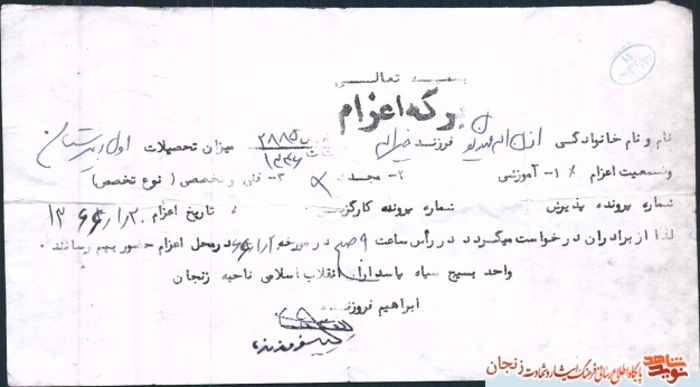 بسمه تعالی
برگه اعزام
نام و نام خانوادگی فرزند ش ش ۲۸۸۵ میزان تحصیلات اول دبیرستان
ت ت ۱۳۴۶
وضعیت اعزام ٪ ۱- آموزشی ۲- مجدد ۳- فنی و تخصصی ( نوع تخصص )
شماره پرونده پذیرش شماره پرونده کارگزینی تاریخ اعزام
لذا از برادران درخواست میگردد در رأس ساعت ۹ صبح در مورخه در محل اعزام حضور بهم رسانند .
واحد بسیج سپاه پاسداران انقلاب اسلامی ناحیه زنجان
ابراهیم فروزنده
نوید شاهد پایگاه اطلاع رسانی فرهنگ ایثار و شهادت زنجان